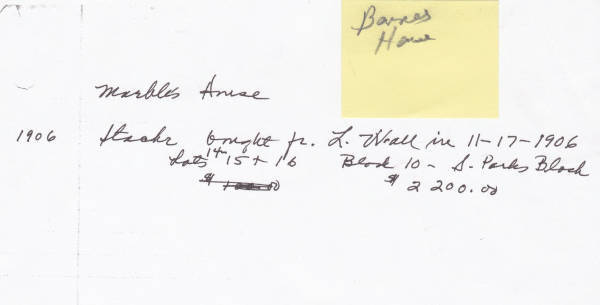 Barnes
House
Marbles House
1906 bought fr. L. Wall in 11-17-1906
Lots 14 15 + 16 Block 10 - S. Parks Block
$ 2 200.00